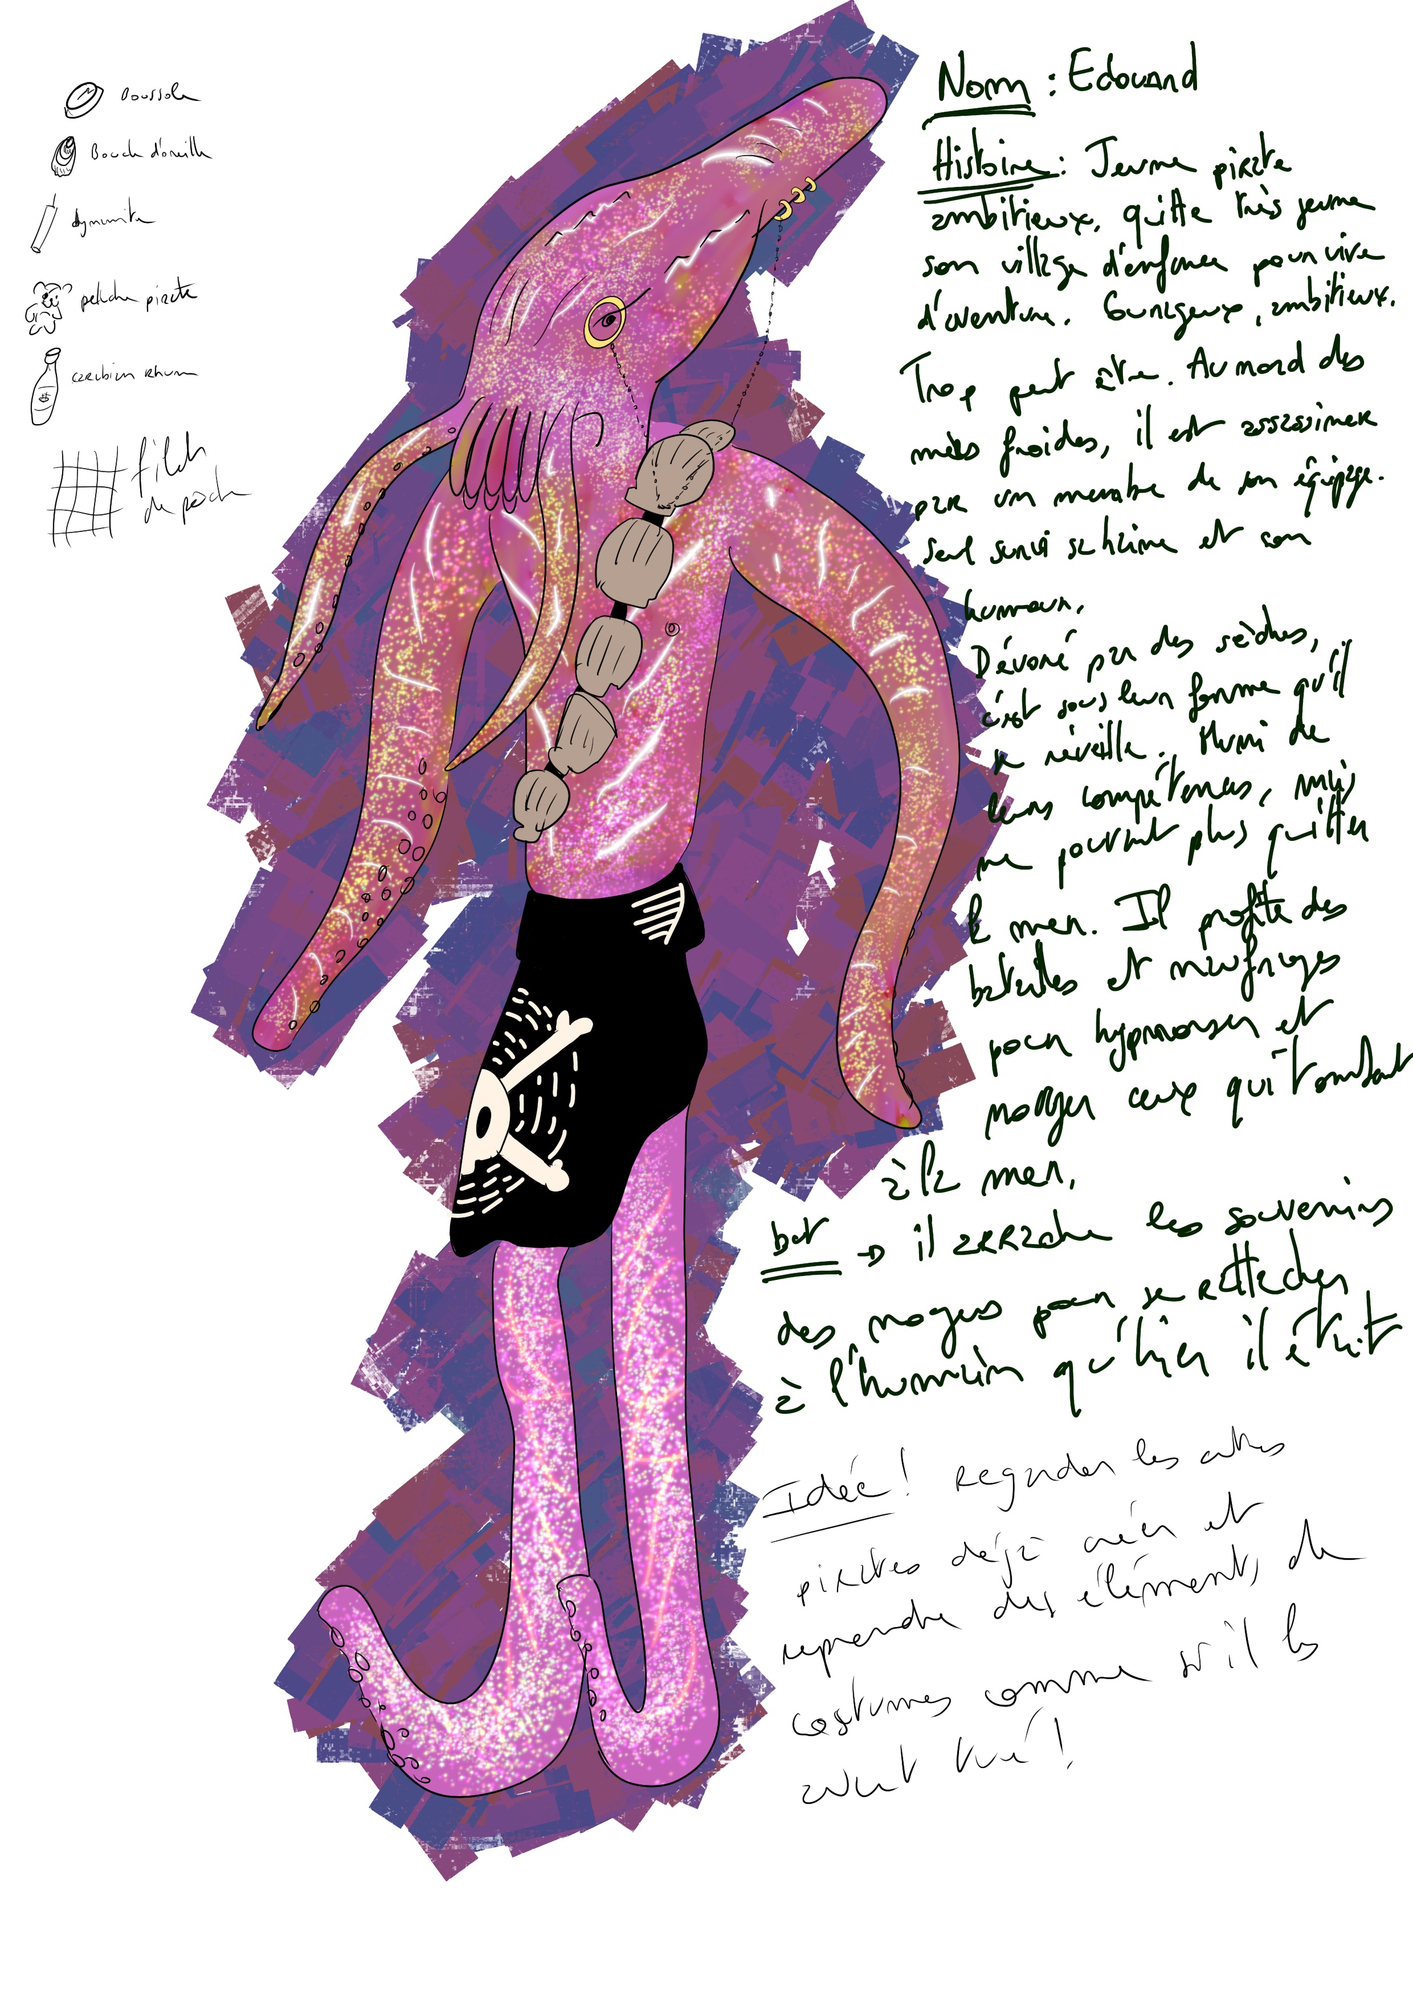 Boussole
Boucle d'oreille
dynamite
peluche pirate
caribian rhum
filet
de pêche
Nom : Edouard
Histoire : Jeune pirate
ambitieux, quitte très jeune
son village d'enfance pour vivre
d'aventure. Courageux, ambitieux.
Trop peut être. Au nord des
mers froides, il est assassiner
par un membre de son équipage.
Seul survi sa haine et son
humour.
Dévoré par des sèches,
c'est sous leur forme qu'il
se réveille. Muni de
leurs compétences, mais
ne pouvant plus quitter
la mer. Il profite des
batailles et naufrages
pour hypnoser et
noyer ceux qui tombent
à la mer.
but → il arrache les souvenirs
des noyers pour se rattacher
à l'humain qu'hier il était
Idée ! Regarder les autres
pirates déjà créer et
reprendre des éléments de
costumes comme s'il les
avait tué !